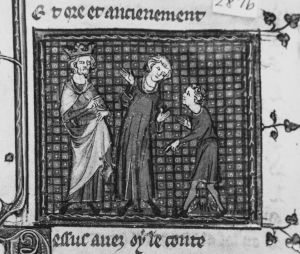 Et ore et anciennement
2816
Dessus auez oy le conte